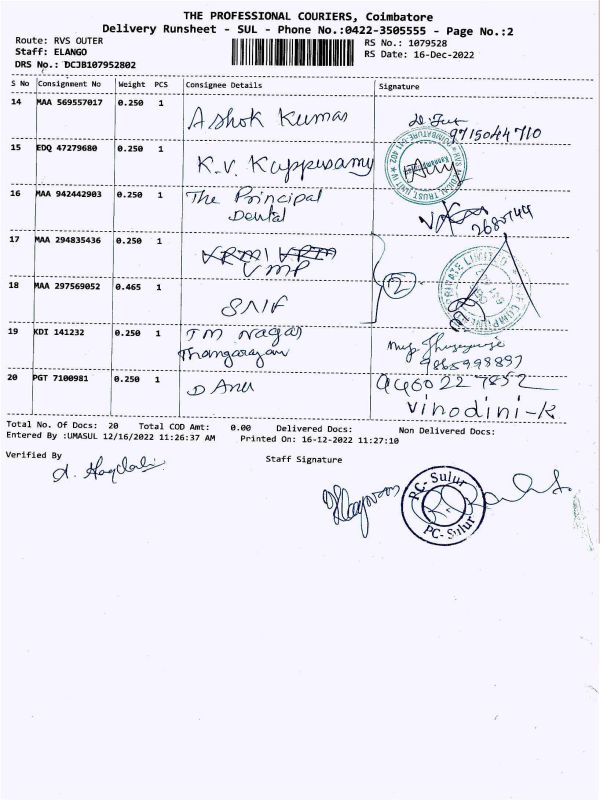 THE PROFESSIONAL COURIERS, Coimbatore
Delivery Runsheet - SUL - Phone No.:0422-3505555 - Page No.:2
Route: RVS OUTER
RS No.: 1079528
Staff: ELANGO
RS Date: 16-Dec-2022
DRS No.: DCJB107952802
S No Consignment No Weight PCS Consignee Details Signature
14 MAA 569557017 0.250 1 Ashok Kumar
9715044710
15 EDQ 47279680 0.250 1 K.V. Kuppusamy
16 MAA 942442903 0.250 1 The Principal
Dental
17 MAA 294835436 0.250 1 VRM VRM
VMP
2
18 MAA 297569052 0.465 1 SNIF
19 KDI 141232 0.250 1 TM Nagar
9865998897
20 PGT 7100981 0.250 1 D Anu
9460227852
vinodini-k
Total No. Of Docs: 20 Total COD Amt: 0.00 Delivered Docs: Non Delivered Docs:
Entered By :UMASUL 12/16/2022 11:26:37 AM Printed On: 16-12-2022 11:27:10
Verified By
Staff Signature
PC-Sulur
PC-Sulur